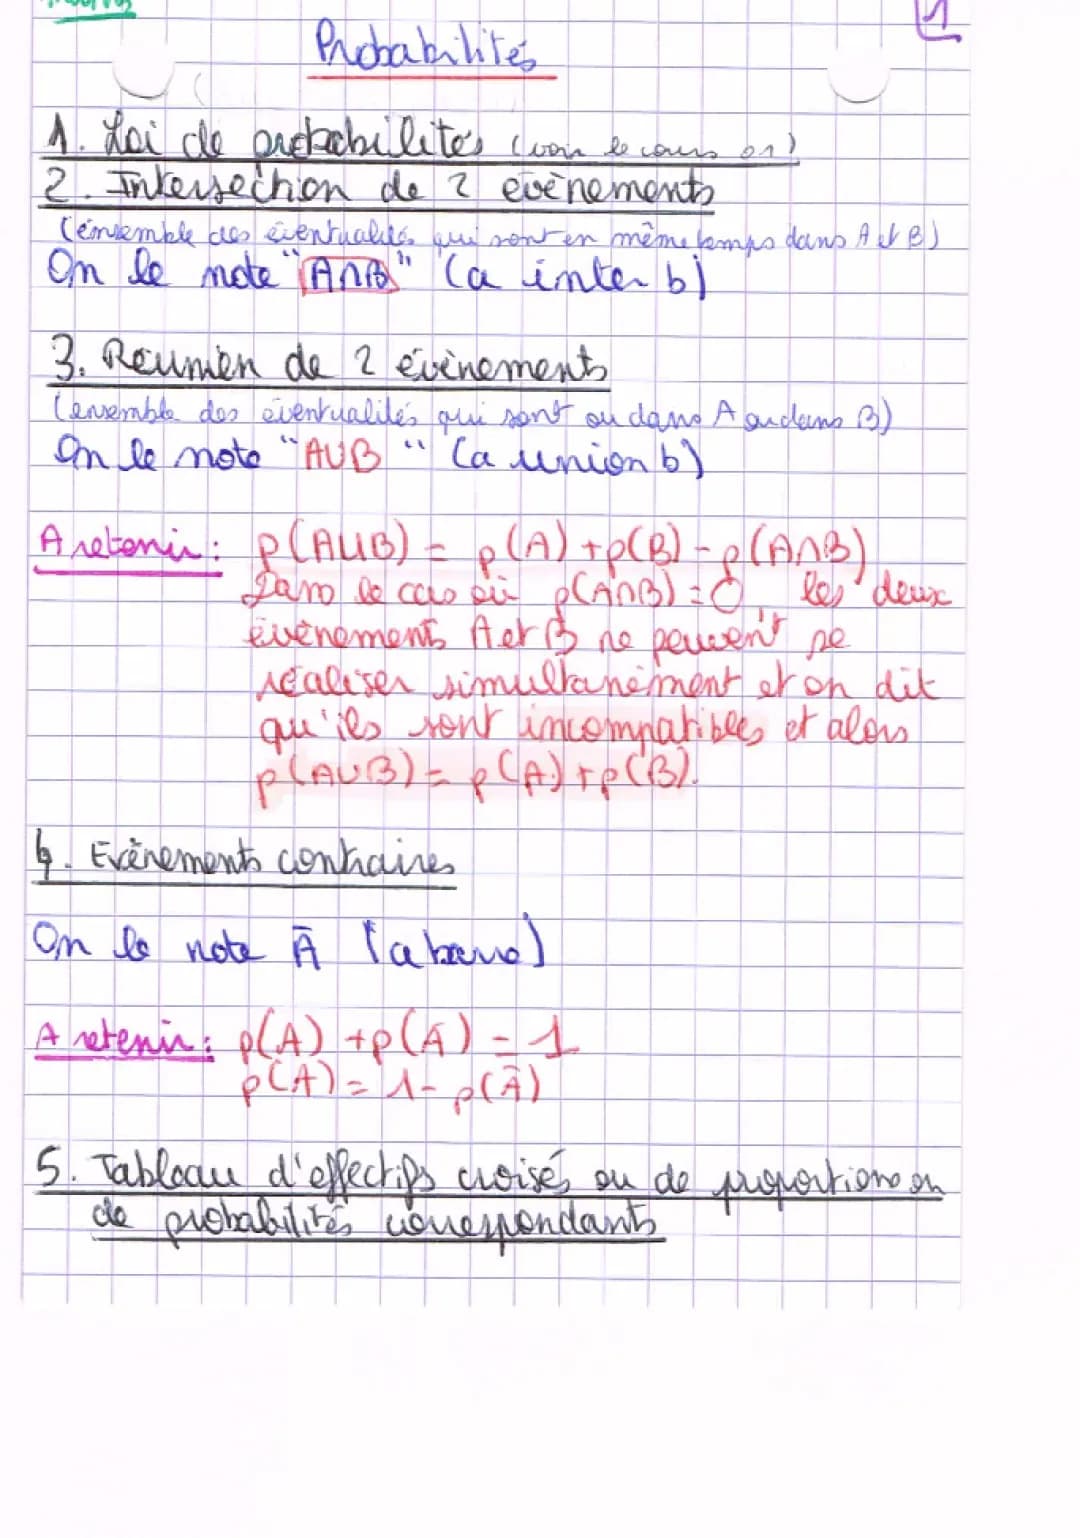 1
Probabilités
1. Loi de probabilités (voir le cours
2. Intersection de 2 evènements
(ensemble des éventualités qui sont en même temps dans A et B)
On le note "A∩B" (a inter b)
3. Réunion de 2 évènements
(ensemble des éventualités qui sont ou dans A ou dans B)
On le note "AUB" (a union b)
A retenir : p(AUB) = p(A) + p(B) - p(A∩B)
Dans le cas où p(A∩B) = 0, les deux
évènements A et B ne peuvent se
réaliser simultanément et on dit
qu'ils sont incompatibles et alors
p(AUB) = p(A) + p(B).
4. Evènements contraires
On le note Ā (a barre)
A retenir : p(A) + p(Ā) = 1
p(A) = 1 - p(Ā)
5. Tableau d'effectifs croisés ou de proportions ou
de probabilités correspondants